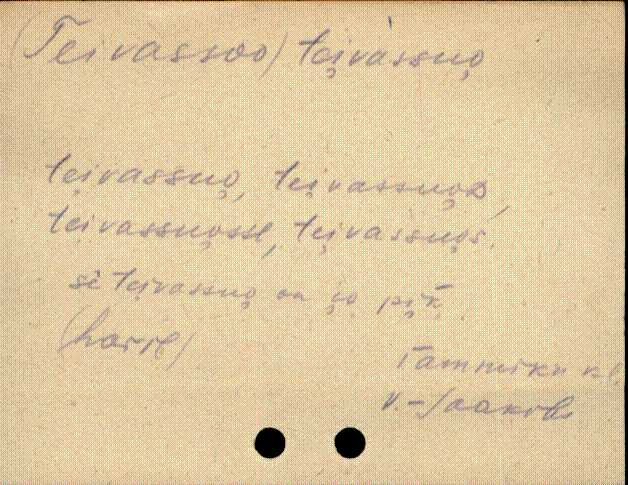 (Teivassoo) tei̯vàssuo̯
tei̯vassuo̯, tei̯vassuo̯D,
tei̯vassuo̯sse, tei̯vassuo̯s.
sè tei̯vassuo̯ on i̯o pi̯k̄.
Tammiku kl.
V.-Jaakobi